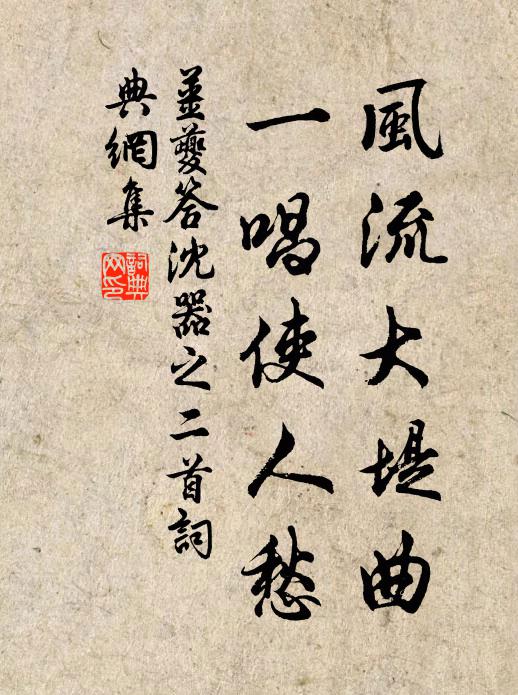 風流大堤曲
一唱使人愁
姜夔答沈器之二首詞
典網集
詞典
网印